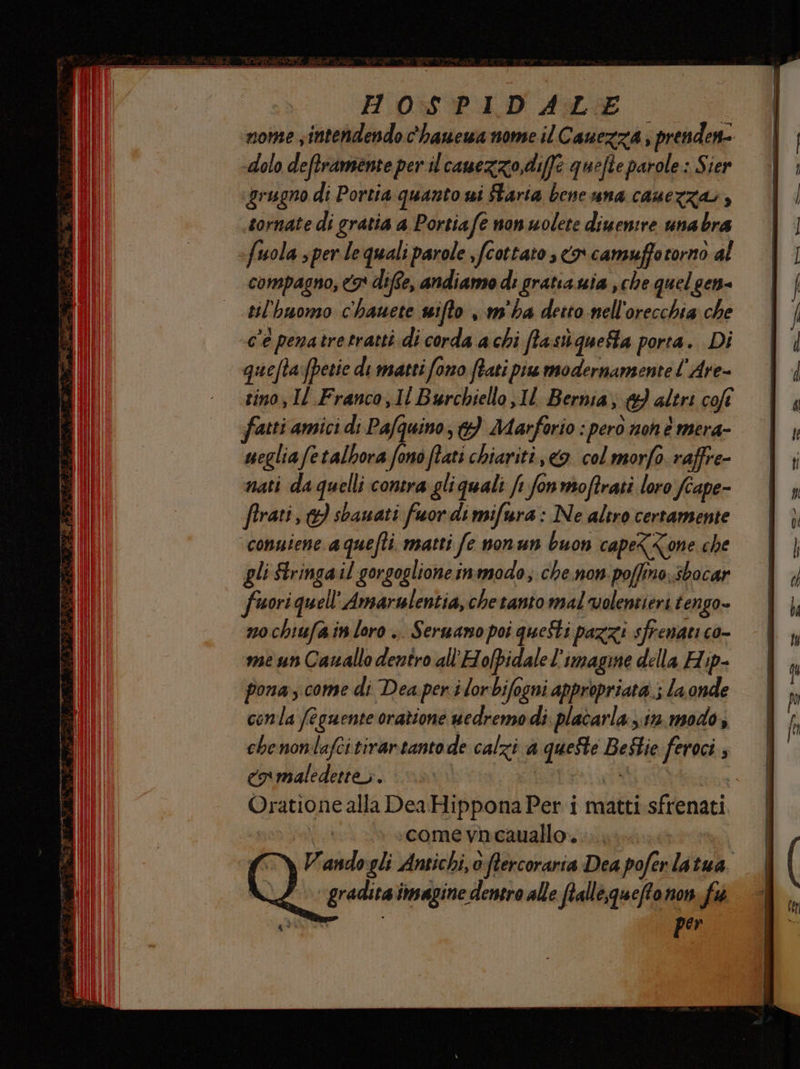 HOSPIDALE
nome, intendendo c'haueua nome il Cauezza, prenden-
dolo destramente per il cauezzo, disse queste parole: Sier
grugno di Portia quanto ui staria bene una cauezza,
tornate di gratia a Portia se non uolete diuenire una bra
suola, per le quali parole, scottato, & camuffo tornò al
compagno, & disse, andiamo di gratia uia, che quel gen-
til'huomo c'hauete uisto, m'ha detto nell'orecchia che
c'è pena tre tratti di corda a chi sta sù questa porta. Di
questa spetie di matti sono stati piu modernamente l'Are-
tino, Il Franco, Il Burchiello, Il Bernia, & altri cosi
fatti amici di Pasquino, & Marforio: però non è mera-
ueglia se talhora sono stati chiariti, & col morso raffre-
nati da quelli contra gli quali si son mostrati loro scape-
strati, & sbauati fuor di misura: Ne altro certamente
conuiene a questi matti se non un buon capezzone che
gli stringa il gorgoglione in modo, che non possino sbocar
fuori quell'Amarulentia, che tanto mal volentieri tengo-
no chiusa in loro. Seruano poi questi pazzi sfrenati co-
me un Cauallo dentro all'Hospidale l'imagine della Hip-
pona, come di Dea per i lor bisogni appropriata; la onde
con la seguente oratione uedremo di placarla, in modo,
che non lasci tirar tanto de calzi a queste Bestie feroci,
& maledette.
Oratione alla Dea Hippona Per i matti sfrenati
come vn cauallo.
QVando gli Antichi, ò stercoraria Dea poser la tua
gradita imagine dentro alle stalle, questo non fù
per